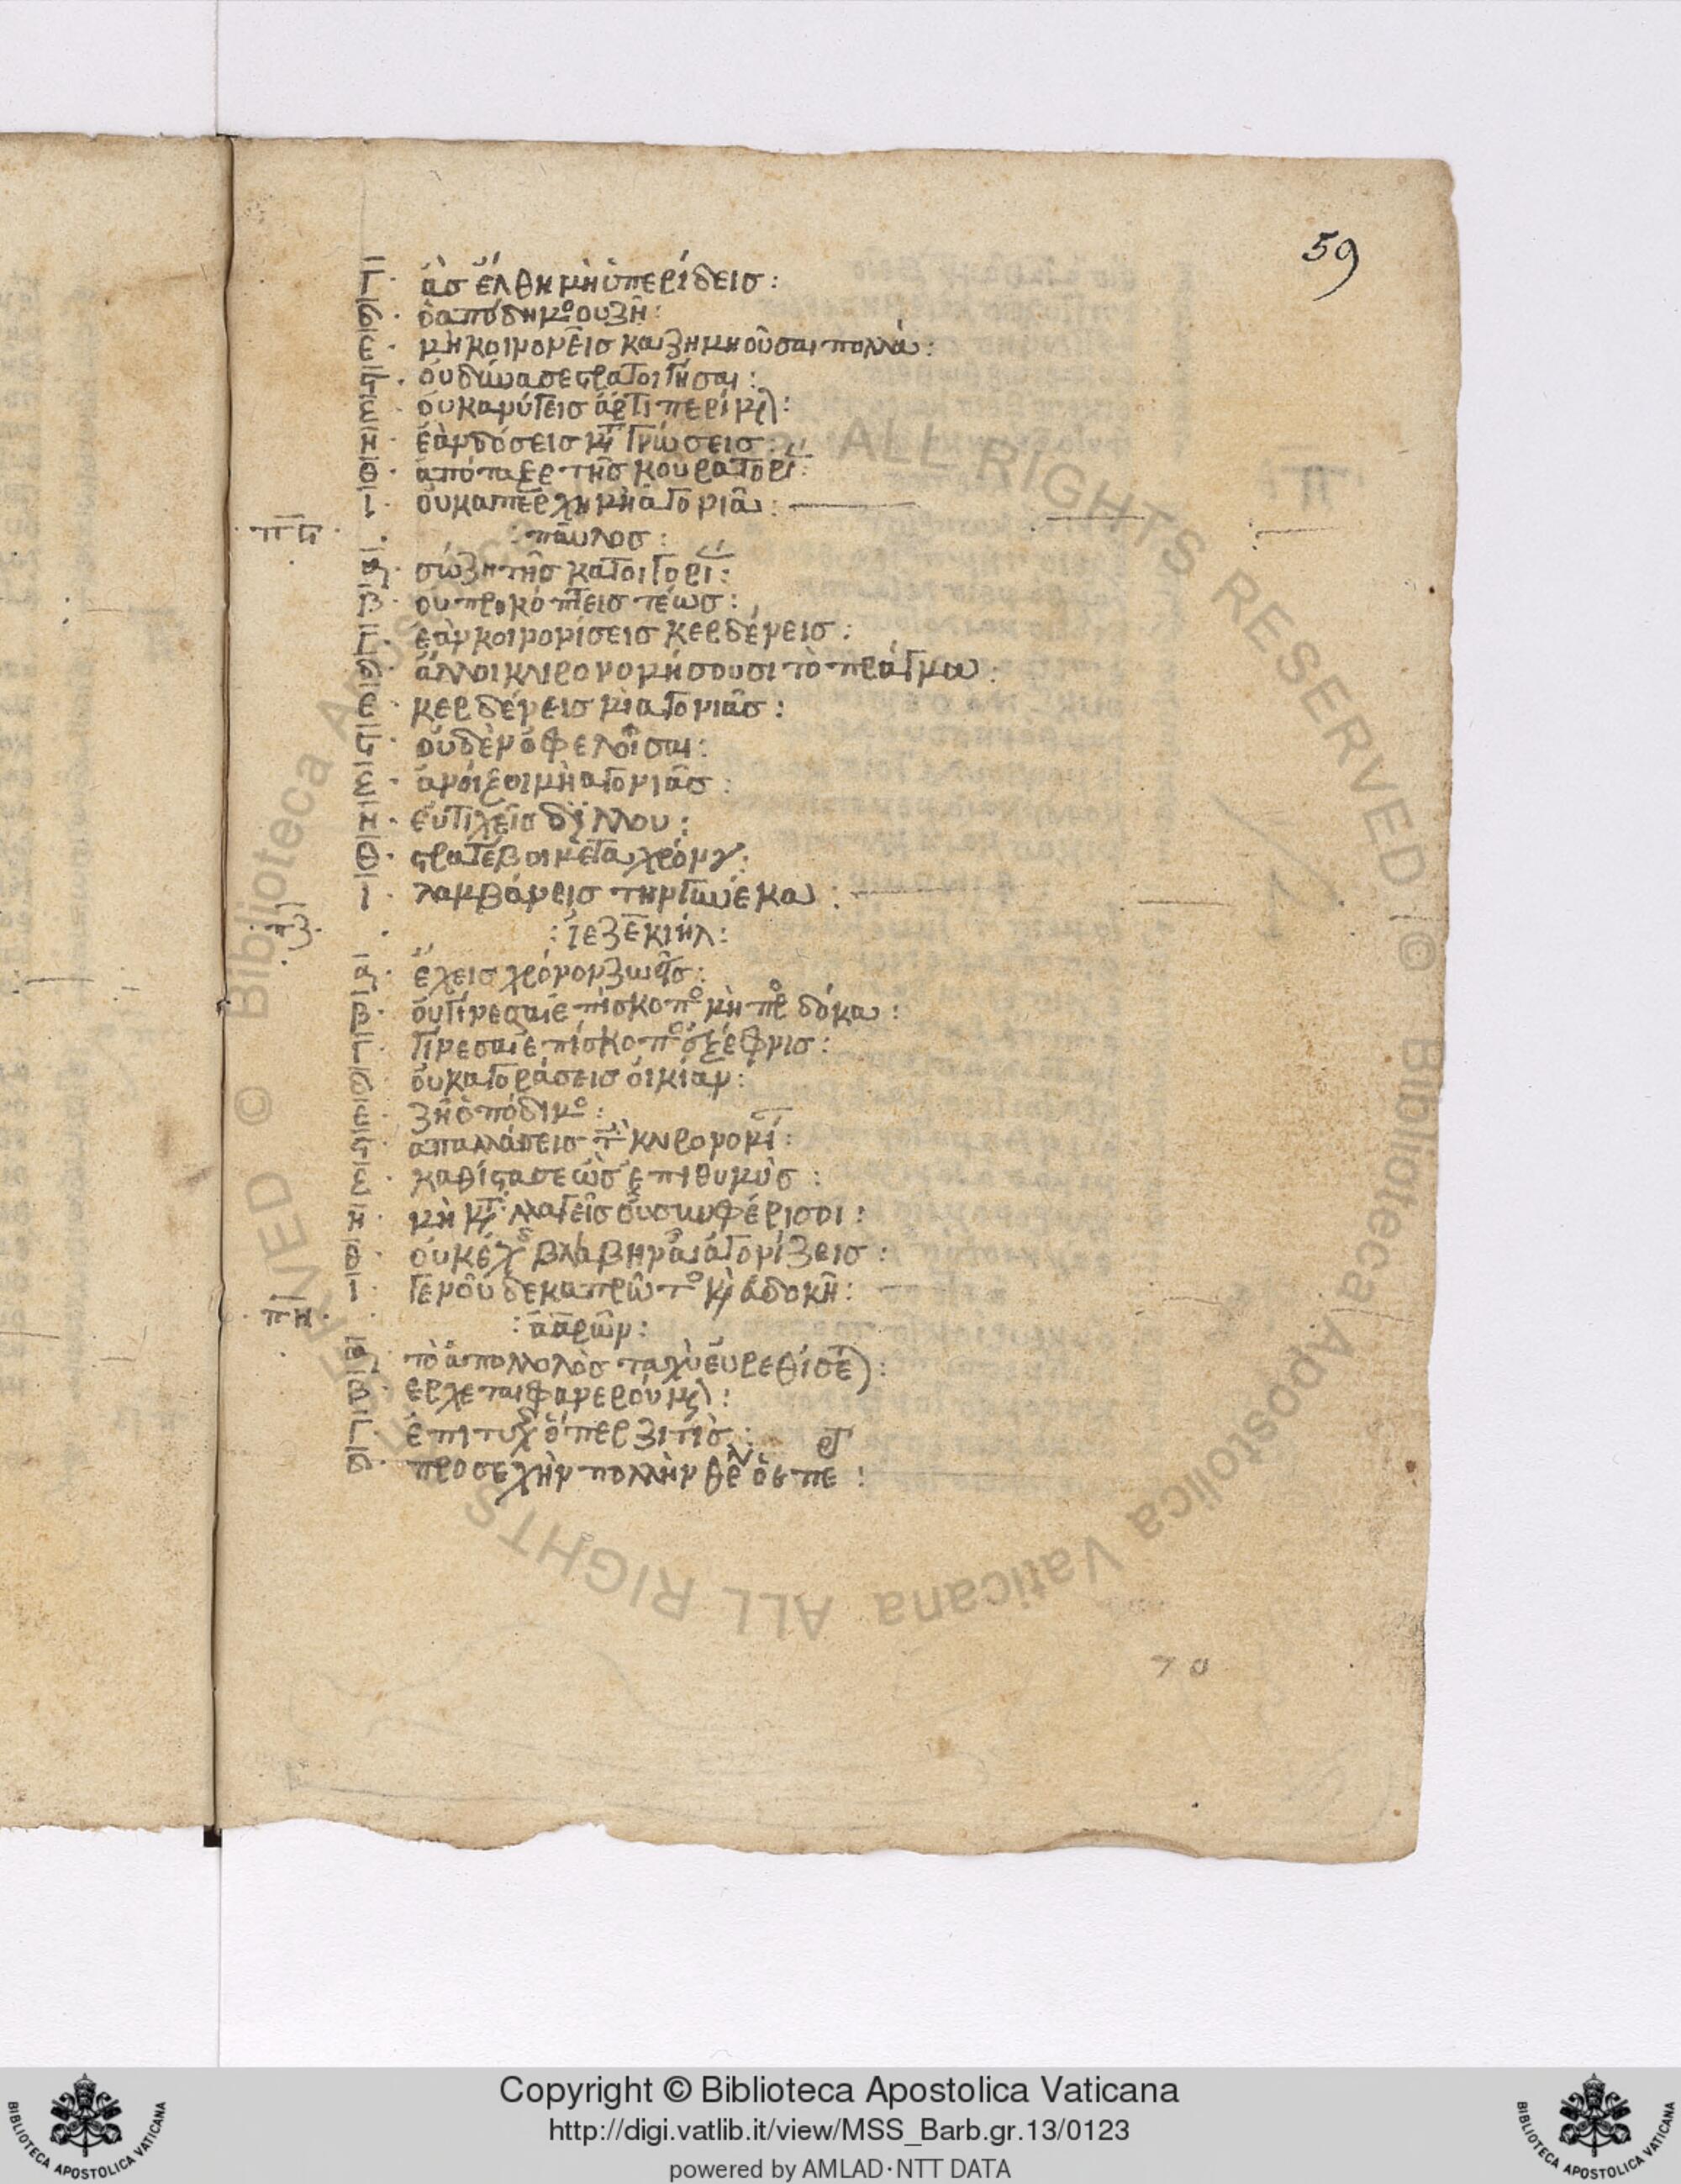 59
Γ· ἀσ ἔλθη μὴ ὑπερίδεισ:
Δ· ὁ απόδημο ου ζῆ:
Ε· μὴ κοινονεῖσ και ζημηοῦσαι πολλά:
Ϛ· οὐ δύνασε στρατοιγῆσαι:
Ζ· οὐκ ανύγεισ ἄρτι περίμ
Η· ἐὰν δόσεισ γνώσεισ:
Θ· ἀπόταξε τῆσ κουρατορί:
Ι· οὐκ απέρχη μὴ ἀγονιᾶ:
πϚ· : παῦλοσ:
Α· σώζη τῆσ κατοιγορί:
Β· ου προκόπτεισ τέωσ:
Γ· ἐὰν κοινονίσεισ κερδένεισ:
Δ· ἄλλοι κλιρονομήσουσι τὸ πράγμα:
Ε· κερδένεισ μὶ αγονιᾶσ:
Ϛ· οὐδὲν ὀφελοῖσαι:
Ζ· ἄνοιξοι μὴ αγονιᾶσ:
Η· εὐτιχεῖσ δϊ ἄλλου:
Θ· στρατέβοι μετα χρόν:
Ι· λαμβάνεισ τὴν γυνέκα:
πζ· : ἰεζεκιήλ:
Α· ἔχεισ χρόνον ζωῆσ:
Β· οὐ γίνεσαι επίσκοπο μὴ προ δόκα:
Γ· γίνεσαι επίσκοπο ἐξέφνισ:
Δ· οὐκ αγοράσεισ οἰκίαν:
Ε· ζῆ ὁ πόδιμο:
Ϛ· απαλλάσεισ κλιρονομί:
Ζ· καθίστασε ὡσ ἐπιθυμὺσ:
Η· μὴ λλαγεῖσ οὐ συνφέρι σοι:
Θ· οὐκ έχ βλάβην ἀγονίζεισ:
Ι· γεν οὐ δεκαπρῶτο ἀδοκῆ:
πη· : ἀαρῶν:
Α· τὸ ἀπολλολὸσ ταχὺ εὑρεθίσε:
Β· ερχεται φανερὸν:
Γ· ἐπιτυχ ὅπερ ζιτῖσ:
Δ· προσεχὴν πολλὴν
70
Copyright © Biblioteca Apostolica Vaticana
http://digi.vatlib.it/view/MSS_Barb.gr.13/0123
powered by AMLAD·NTT DATA
BIBLIOTECA APOSTOLICA VATICANA
BIBLIOTECA APOSTOLICA VATICANA
© Biblioteca Apostolica Vaticana ALL RIGHTS RESERVED